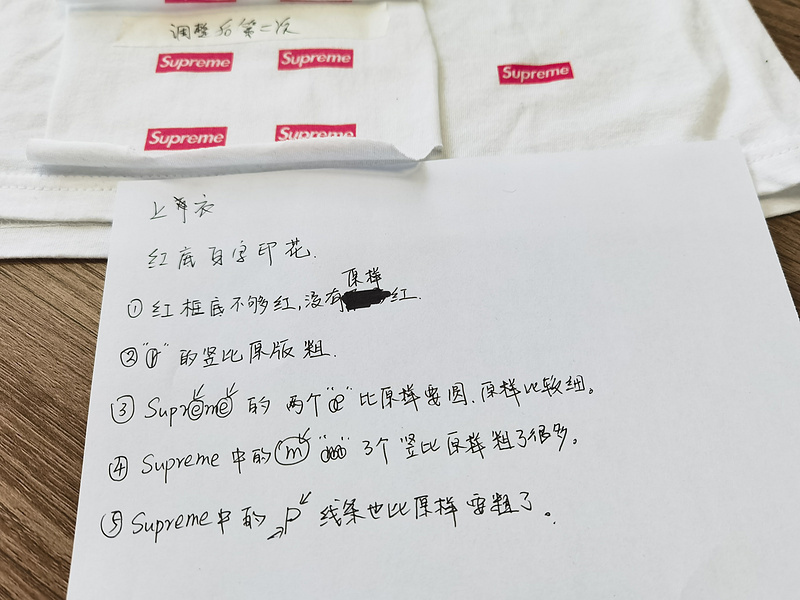 调整后第二次
Supreme Supreme
Supreme
Supreme Supreme
上单衣
红底白字印花.
原样
①红框底不够红,没有红.
②"P"的竖比原版粗.
③Supreme的两个"e"比原样要圆.原样比较细。
④Supreme中的"m" 3个竖比原样粗了很多。
⑤Supreme中的p线条也比原样要粗了。